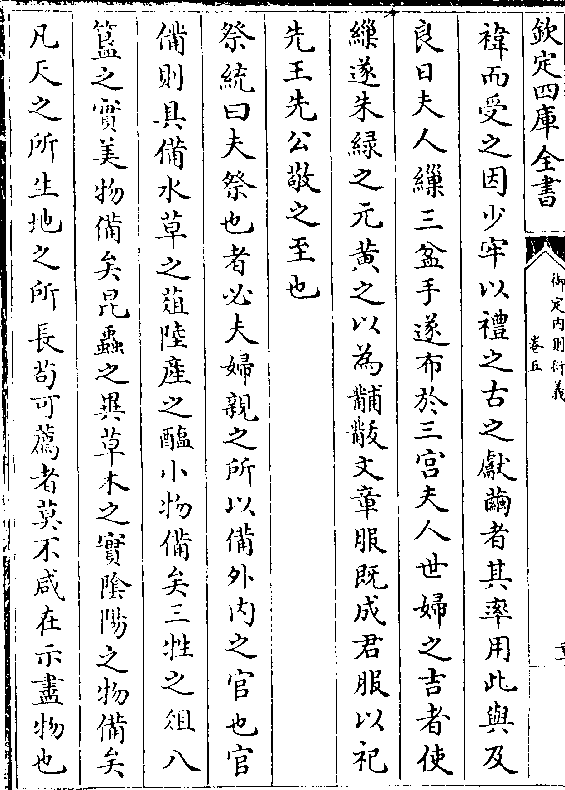 欽定四庫全書
御定內則衍義
卷五
褘而受之因少牢以禮之古之獻繭者其率用此與及
良日夫人繅三盆手遂布於三宮夫人世婦之吉者使
繅遂朱緑之元黄之以為黼黻文章服既成君服以祀
先王先公敬之至也
祭統曰夫祭也者必夫婦親之所以備外内之官也官
備則具備水草之菹陸產之醢小物備矣三牲之俎八
簋之實美物備矣昆蟲之異草木之實陰陽之物備矣
凡天之所生地之所長苟可薦者莫不咸在示盡物也